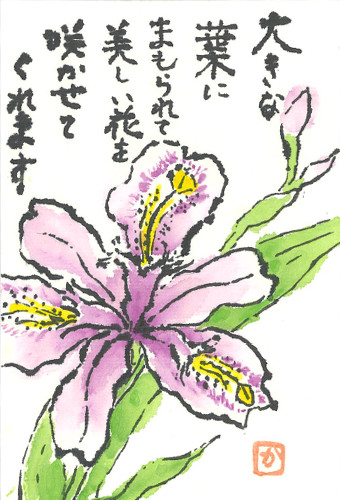 大きな
葉に
まもられて
美しい花を
咲かせて
くれます
か